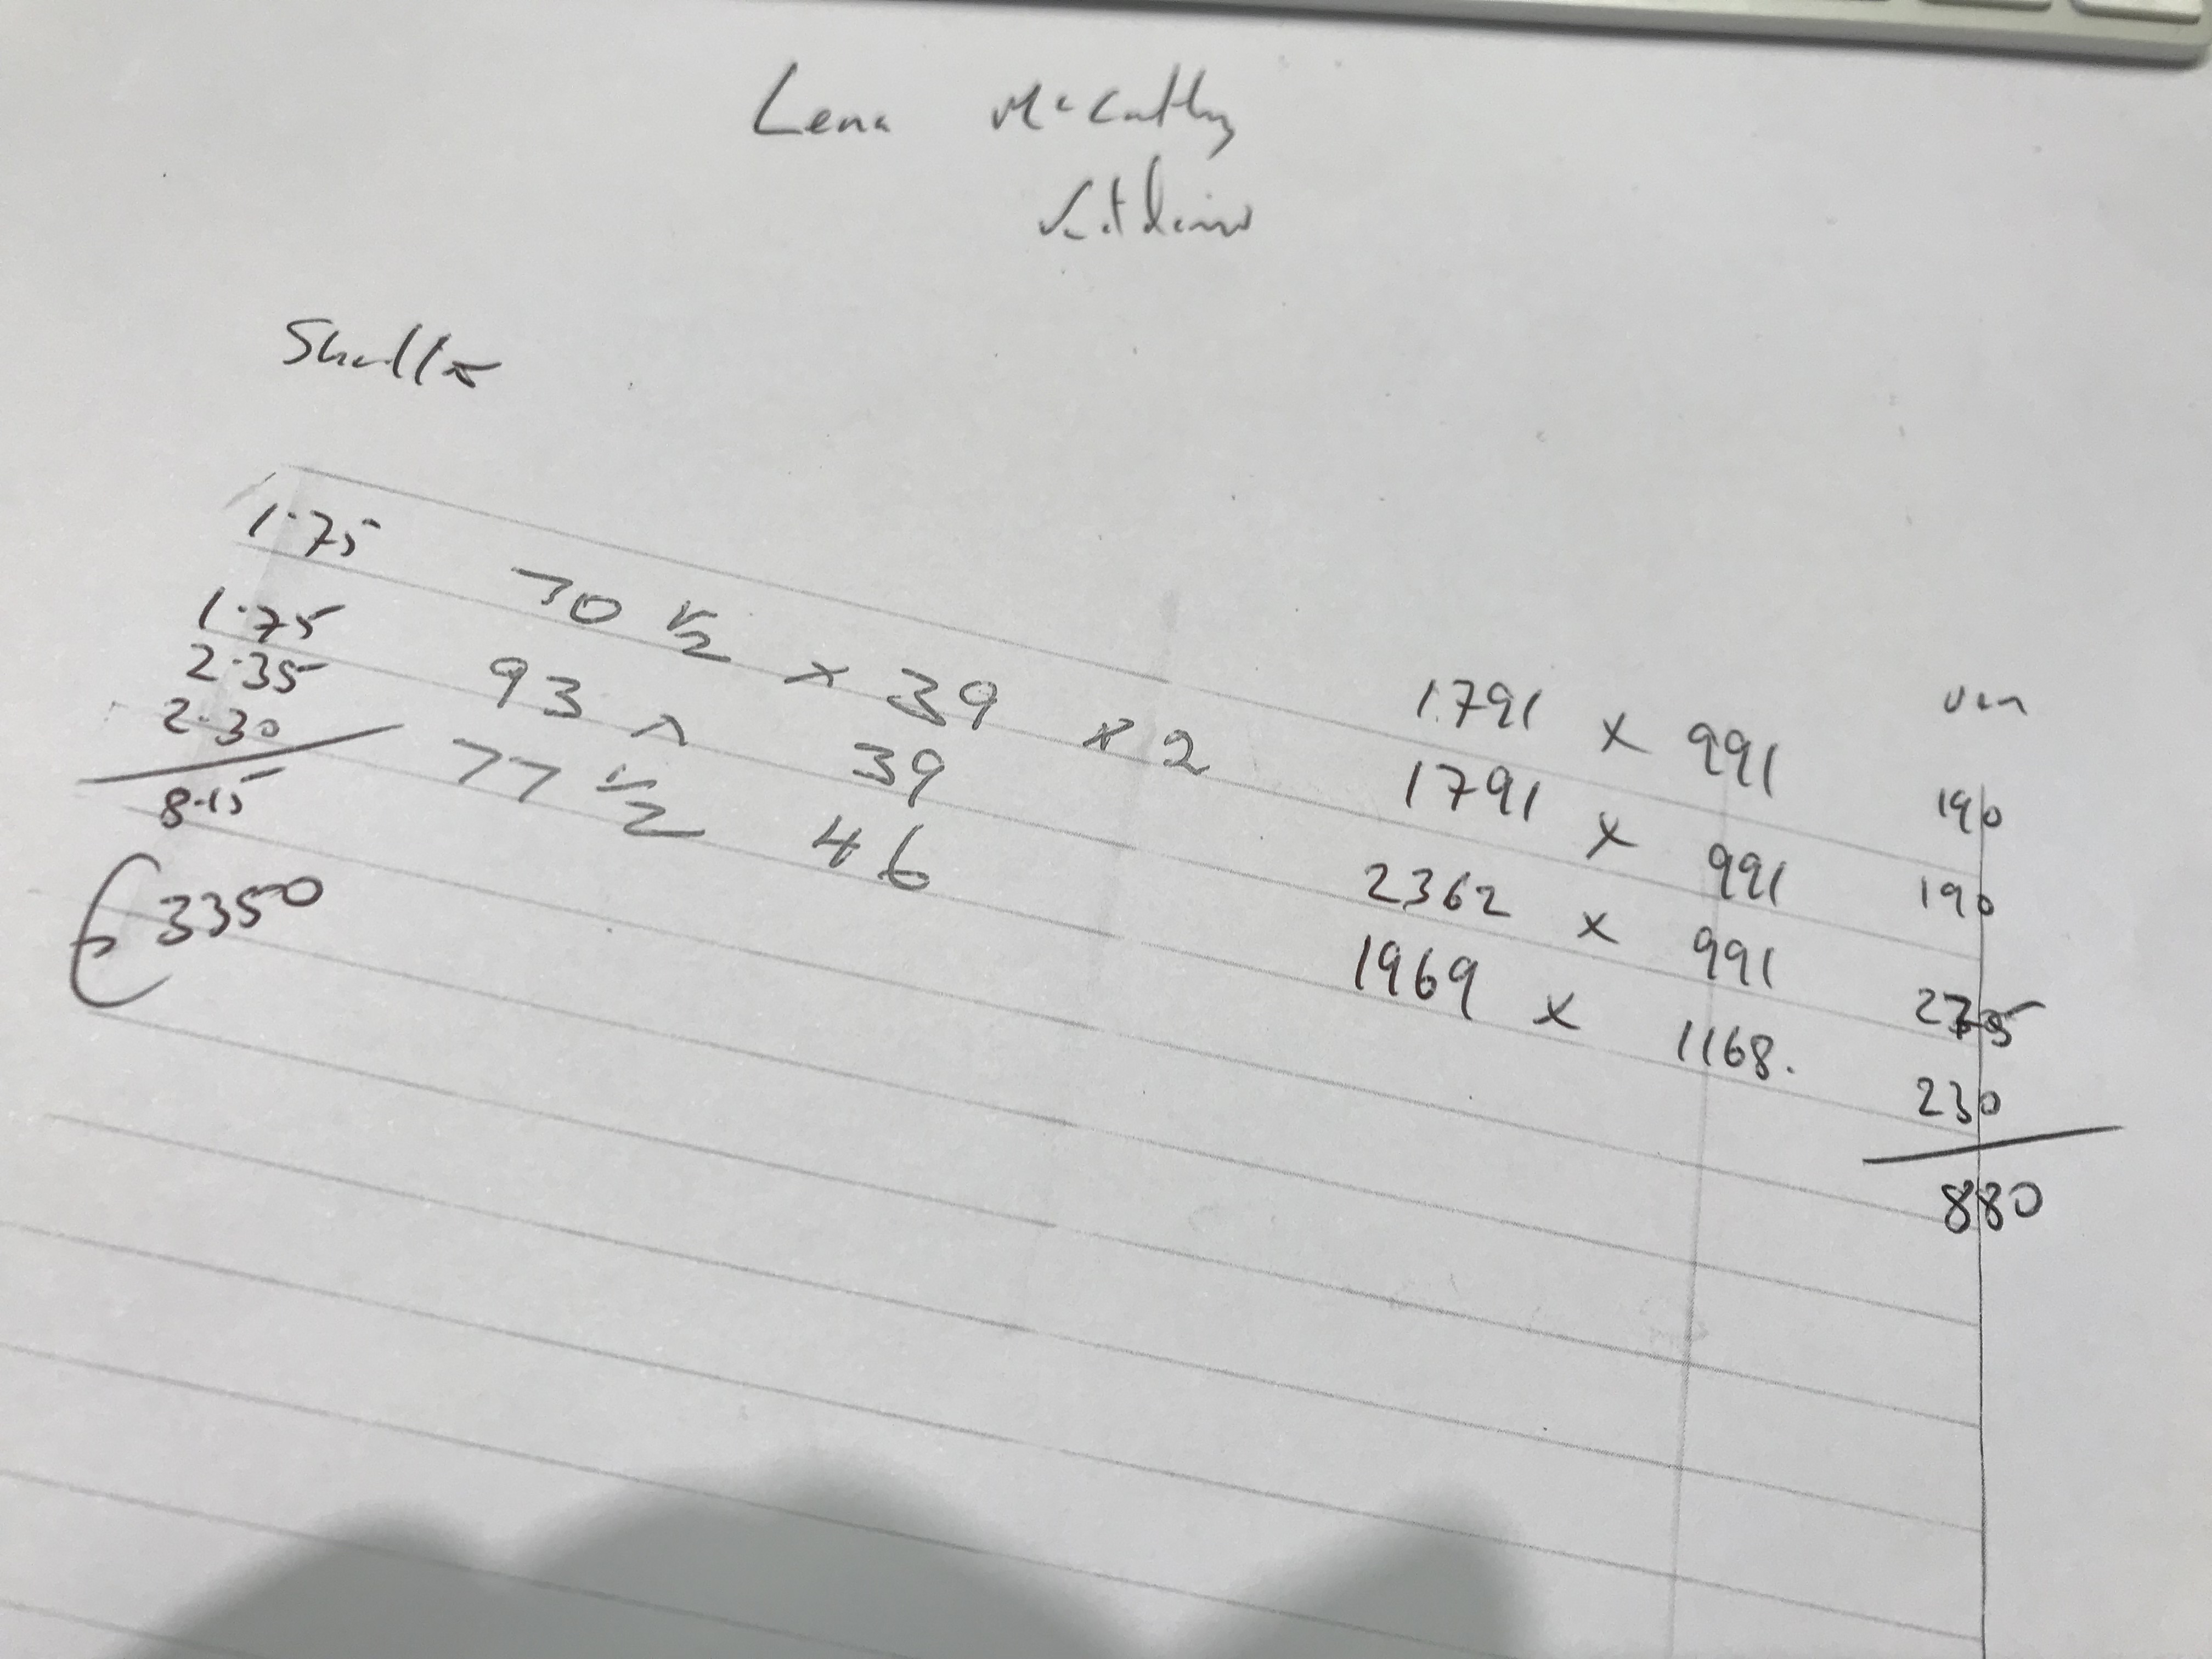 Lena McCathy
1.75 70 1/2 x 39 x 2 1791 x 991 190
1.75 1791 x 991 190
2.35 93 x 39 2362 x 991 275
2.30 77 1/2 46 1969 x 1168. 230
8.15 880
€3350